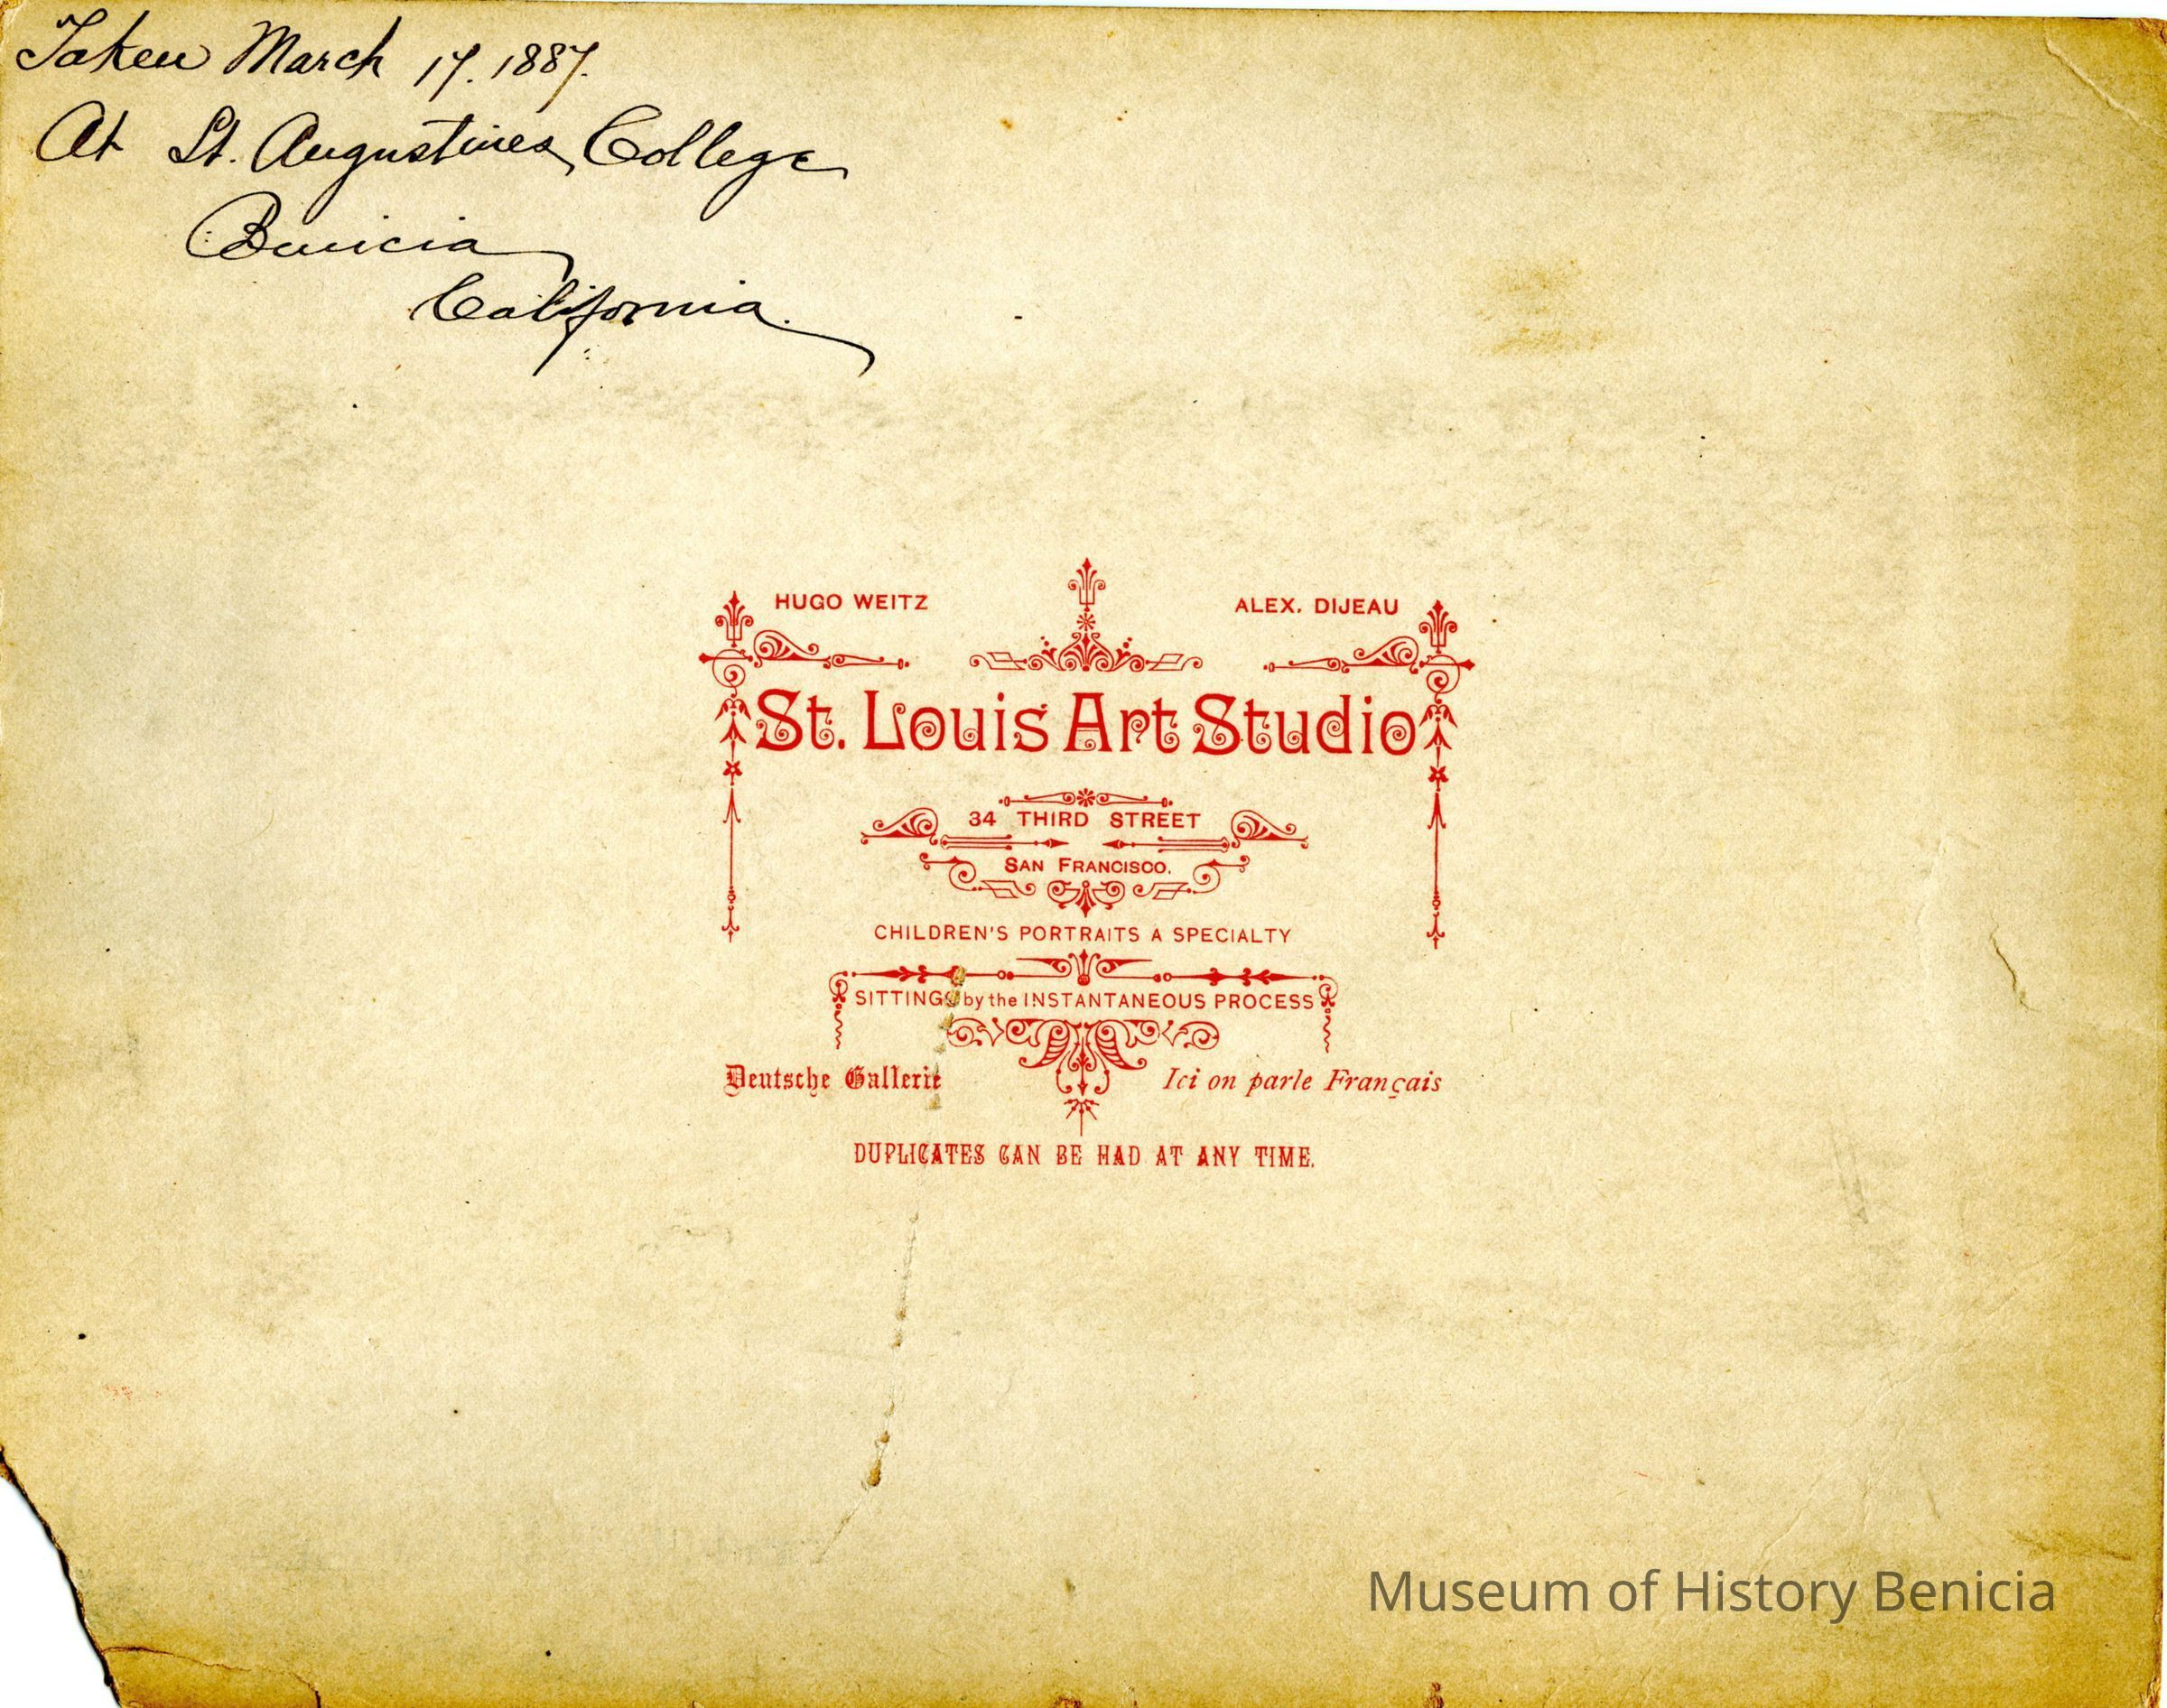 Taken March 17. 1887.
At St. Augustines College
Benicia
California.
HUGO WEITZ
ALEX. DIJEAU
St. Louis Art Studio
34 THIRD STREET
SAN FRANCISCO.
CHILDREN'S PORTRAITS A SPECIALTY
SITTINGS by the INSTANTANEOUS PROCESS
Deutsche Gallerie
Ici on parle Français
DUPLICATES CAN BE HAD AT ANY TIME.
Museum of History Benicia